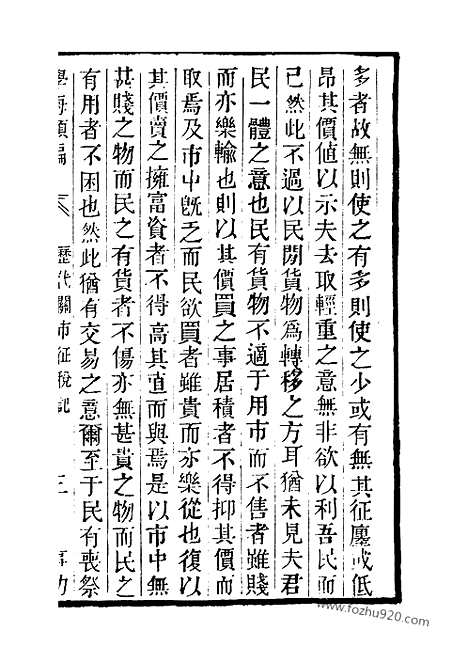 多者故無則使之有多則使之少或有無其征廛或低
昂其價値以示夫去取輕重之意無非欲以利吾民而
已然此不過以民閒貨物爲轉移之方耳猶未見夫君
民一體之意也民有貨物不適于用市而不售者雖賤
而亦樂輸也則以其價買之事居積者不得抑其價而
取焉及市中旣乏而民欲買者雖貴而亦樂從也復以
其價賣之擁富資者不得高其直而與焉是以市中無
甚賤之物而民之有貨者不傷亦無甚貴之物而民之
有用者不困也然此猶有交易之意爾至于民有喪祭
學海類編
歷代關市征稅記
三
事功
www.fozhu920.com